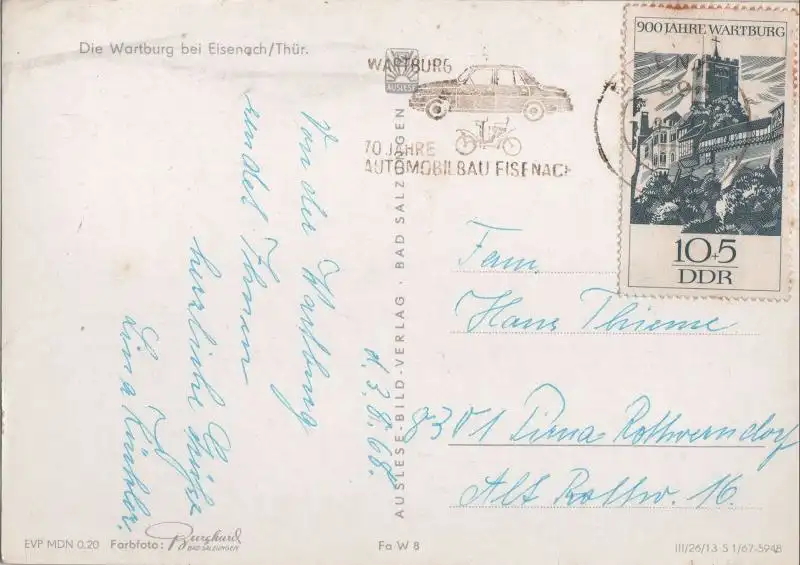 Die Wartburg bei Eisenach/Thür.
WARTBURG
70 JAHRE
AUTOMOBILBAU EISENACH
AUSLESE
900 JAHRE WARTBURG
10+5
DDR
d. 3.8.68.
Von der Wartburg
sendet Ihnen
herzliche Grüße
Lina
AUSLESE-BILD-VERLAG · BAD SALZUNGEN
Fam.
Hans Thieme
8301 Pirna Rottwerndorf
Alt Rottw. 16
EVP MDN 0,20 Farbfoto: Burghard
BAD SALZUNGEN
Fa W 8
III/26/13 S 1/67-5948